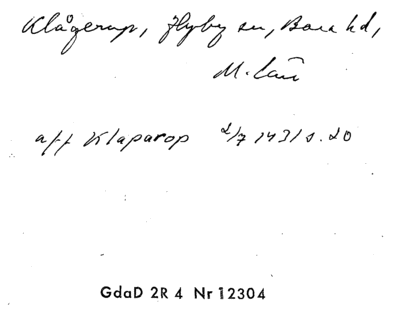 Klågerup, Hyby sn, Bara hd,
M. län
aff Klaparop 2/7 1431 s. 20
GdaD 2R 4 Nr 12304